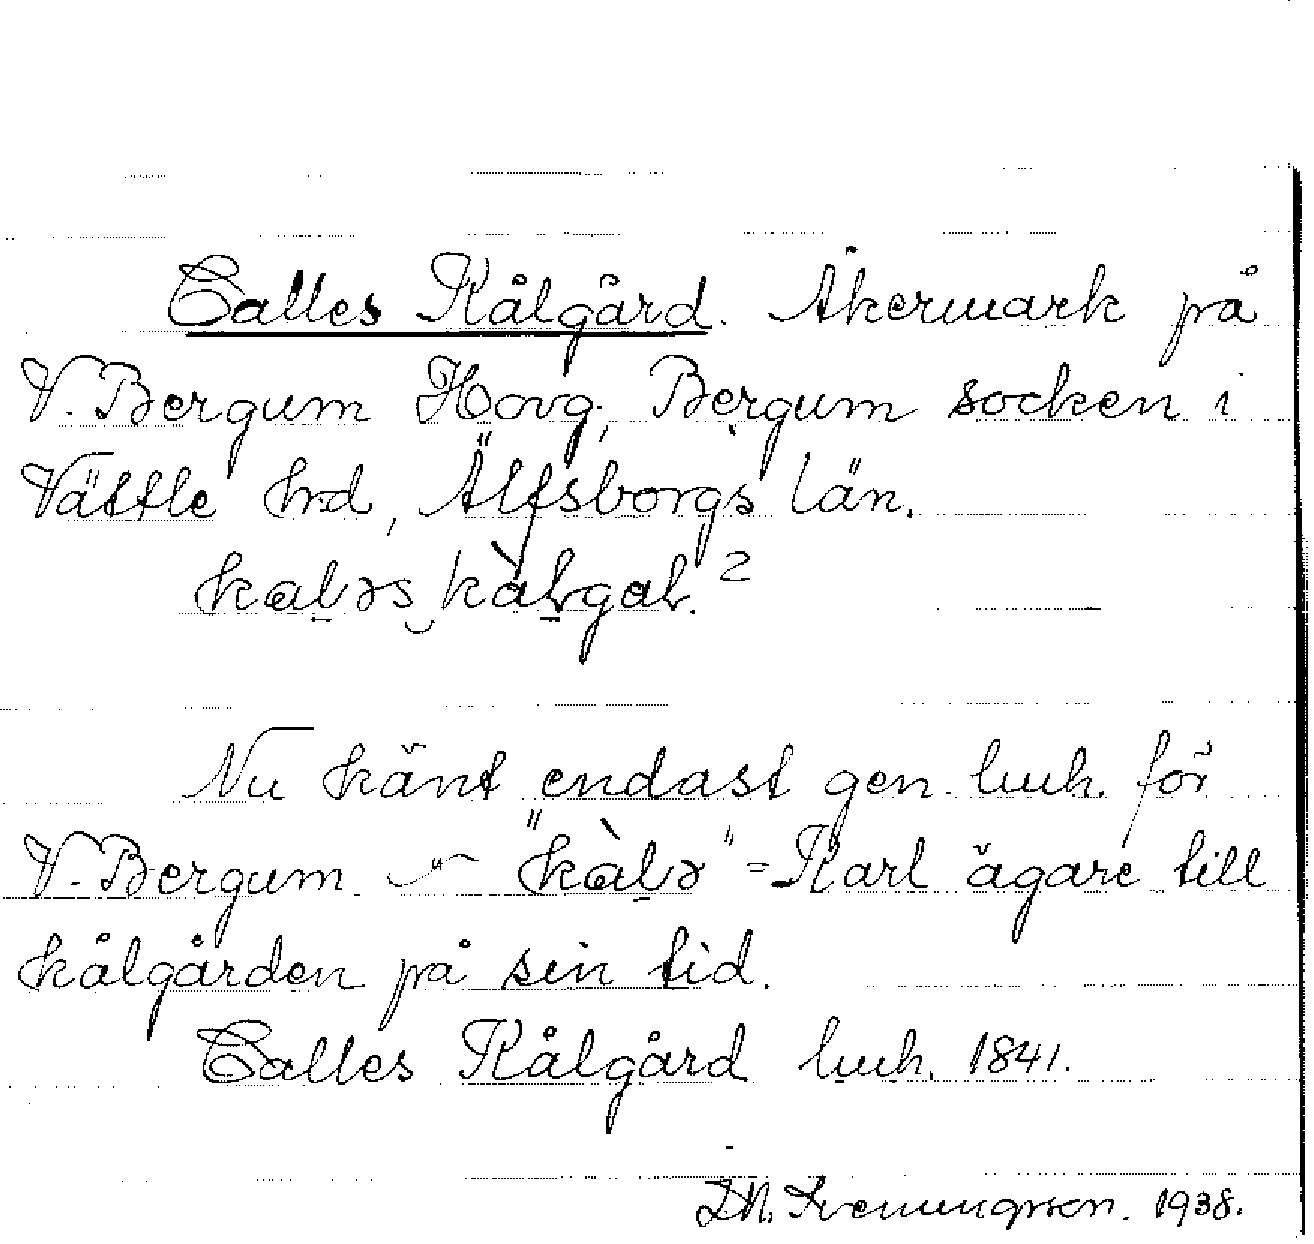 Calles Kålgård. Åkermark på
V. Bergum Hovg, Bergum socken i
Vättle hrd, Älfsborgs län.
kaləs kàlgaḷ. 2
Nu känt endast gen. luh. för
V. Bergum. "kàlə" = Karl ägare till
kålgården på sin tid.
Calles Kålgård luh. 1841.
1938.